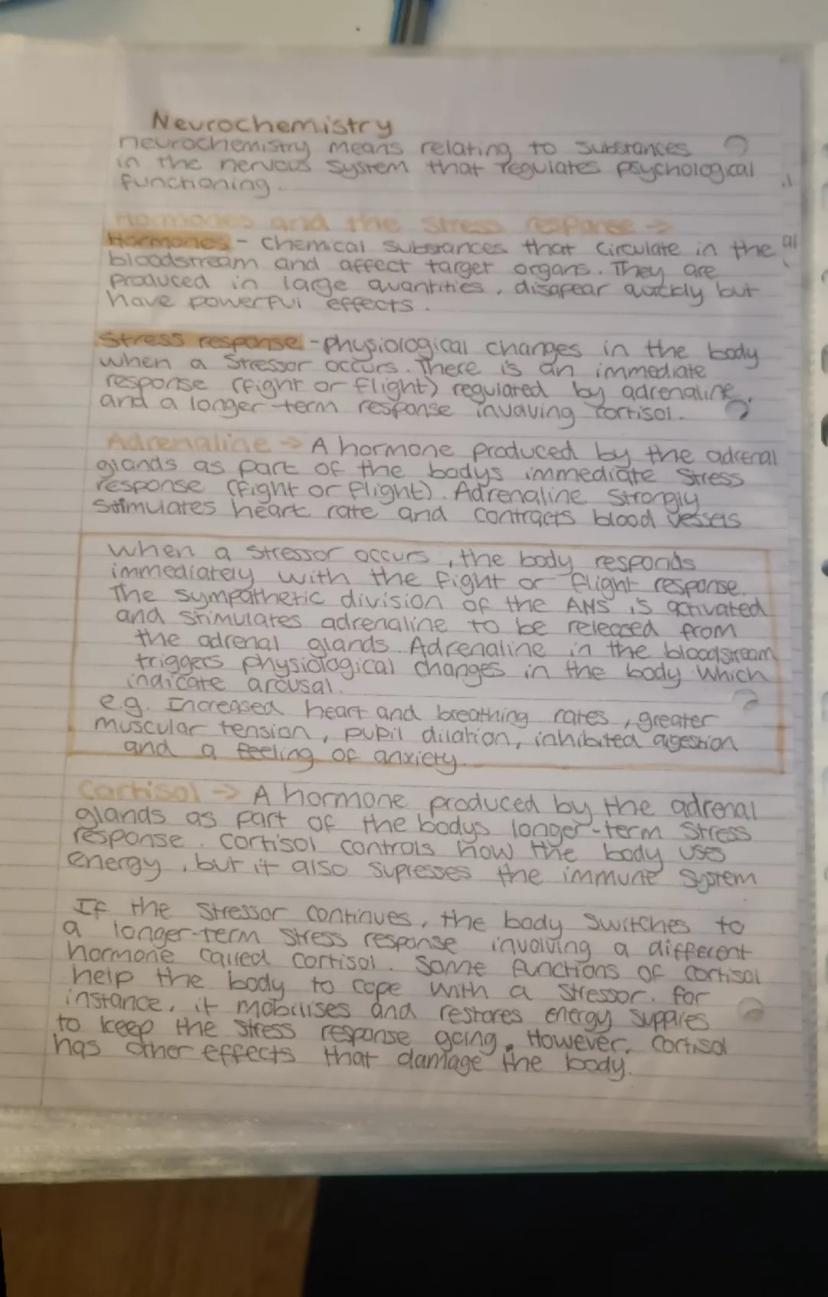 Neurochemistry
neurochemistry means relating to substances
in the nervous system that regulates psychological
functioning.
Hormones and the stress response →
Hormones - chemical substances that circulate in the
bloodstream and affect target organs. They are
produced in large quantities, disapear quickly but
have powerful effects.
Stress response - physiological changes in the body
when a stressor occurs. There is an immediate
response (fight or flight) regulated by adrenaline,
and a longer-term response involving cortisol.
Adrenaline → A hormone produced by the adrenal
glands as part of the bodys immediate stress
response (fight or flight). Adrenaline strongly
stimulates heart rate and contracts blood vessels
when a stressor occurs, the body responds
immediately with the fight or flight response.
The sympathetic division of the ANS is activated
and stimulates adrenaline to be released from
the adrenal glands. Adrenaline in the bloodstream
triggers physiological changes in the body which
indicate arousal.
e.g. Increased heart and breathing rates, greater
muscular tension, pupil dilation, inhibited digestion
and a feeling of anxiety.
Cortisol → A hormone produced by the adrenal
glands as part of the bodys longer-term stress
response. Cortisol controls how the body uses
energy, but it also supresses the immune system
If the stressor continues, the body switches to
a longer-term stress response involving a different
hormone called cortisol. Some functions of cortisol
help the body to cope with a stressor. for
instance, it mobilises and restores energy supplies
to keep the stress response going. However, cortisol
has other effects that damage the body.